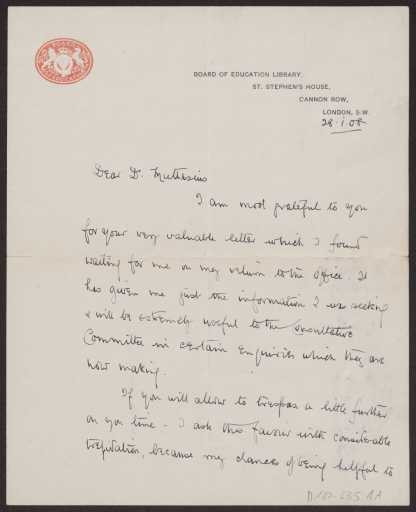 BOARD OF EDUCATION LIBRARY,
ST. STEPHEN'S HOUSE,
CANNON ROW,
LONDON, S.W.
28.1.08
Dear Dr. Muthesius
I am most grateful to you
for your very valuable letter which I found
waiting for me on my return to the office. It
has given me just the information I was seeking
& will be extremely useful to the Consultative
Committee in certain enquiries which they are
now making.
If you will allow to trespass a little further
on your time - I ask this favour with considerable
trepidation, because my chances of being helpful to